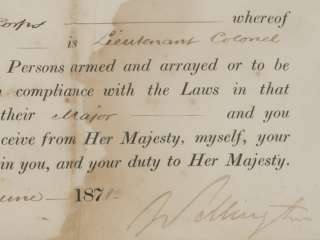 Corps whereof
is Lieutenant Colonel
Persons armed and arrayed or to be
compliance with the Laws in that
their Major and you
ceive from Her Majesty, myself, your
in you, and your duty to Her Majesty.
187
Wellington